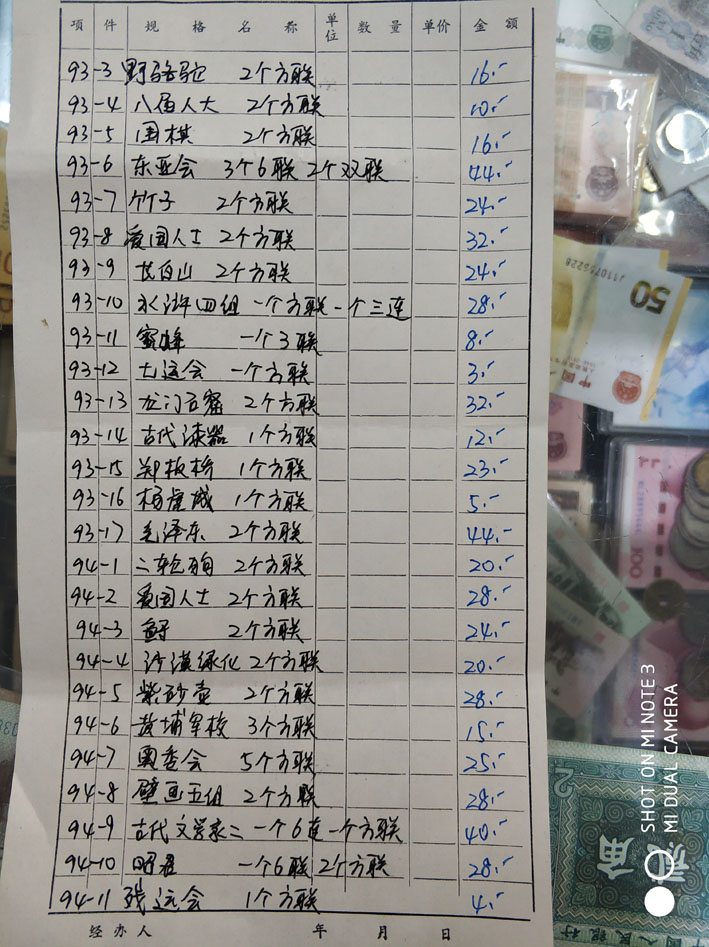 项 件 规 格 名 称 单位 数 量 单价 金 额
93-3 野骆驼 2个方联 16.-
93-4 八届人大 2个方联 10.-
93-5 围棋 2个方联 16.-
93-6 东亚会 3个6联 2个双联 44.-
93-7 竹子 2个方联 24.-
93-8 爱国人士 2个方联 32.-
93-9 长白山 2个方联 24.-
93-10 水浒四组 一个方联 一个三连 28.-
93-11 蜜蜂 一个3联 8.-
93-12 七运会 一个方联 3.-
93-13 龙门石窟 2个方联 32.-
93-14 古代漆器 1个方联 12.-
93-15 郑板桥 1个方联 23.-
93-16 杨虎城 1个方联 5.-
93-17 毛泽东 2个方联 44.-
94-1 二轮狗 2个方联 20.-
94-2 爱国人士 2个方联 28.-
94-3 鲟 2个方联 24.-
94-4 沙漠绿化 2个方联 20.-
94-5 紫砂壶 2个方联 28.-
94-6 黄埔军校 3个方联 15.-
94-7 奥委会 5个方联 25.-
94-8 壁画五组 2个方联 28.-
94-9 古代文学家二 一个6连 一个方联 40.-
94-10 昭君 一个6联 2个方联 28.-
94-11 残运会 1个方联 4.-
经 办 人 年 月 日
50
J110755228
100
2
角
人民银行
SHOT ON MI NOTE 3
MI DUAL CAMERA